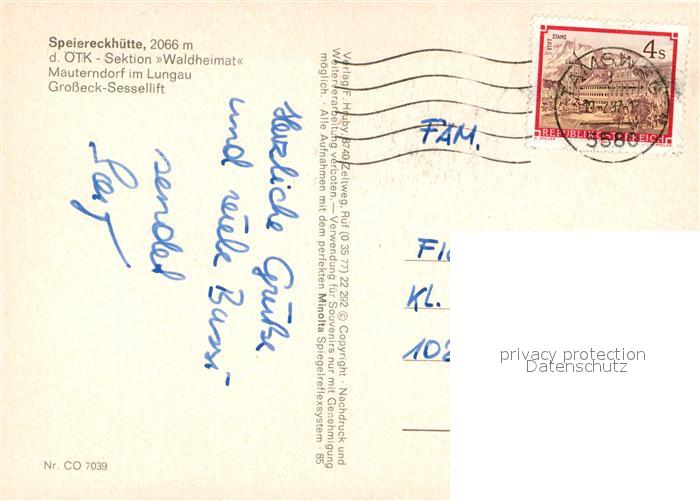 Speiereckhütte, 2066 m
d. ÖTK - Sektion »Waldheimat«
Mauterndorf im Lungau
Großeck-Sessellift
Herzliche Grüße
und viele Bussi
sendet
Verlag F. Hruby 8740 Zeltweg, Ruf (0 35 77) 22 292 © Copyright · Nachdruck und
Weiterverarbeitung verboten. — Verwendung für Souvenirs nur mit Genehmigung
möglich · Alle Aufnahmen mit dem perfekten Minolta Spiegelreflexsystem · 85
STIFT STAMS
4 S
REPUBLIK ÖSTERREICH
TAMSWEG
5580
FAM.
KL.
102
privacy protection
Datenschutz
Nr. CO 7039